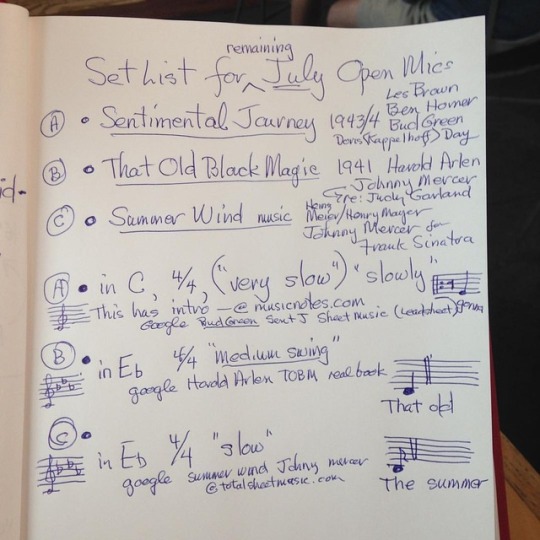 remaining
Set List for ^ July Open Mics
A • Sentimental Journey 1943/4 Les Brown
Ben Homer
Bud Green
Doris (Kappelhoff) Day
B • That Old Black Magic 1941 Harold Arlen
Johnny Mercer
re: Judy Garland
C • Summer Wind music Heinz
Meier/Henry Mayer
Johnny Mercer for
Frank Sinatra
A • in C, 4/4, ("very slow") "slowly"
This has intro — @ musicnotes.com
Google Bud Green Sent J Sheet music (Leadsheet) Gonna
B • in Eb 4/4 "medium swing"
google Harold Arlen TOBM real book
That old
C •
in Eb 4/4 "slow"
google summer wind Johny mercer
@totalsheetmusic.com
The summer